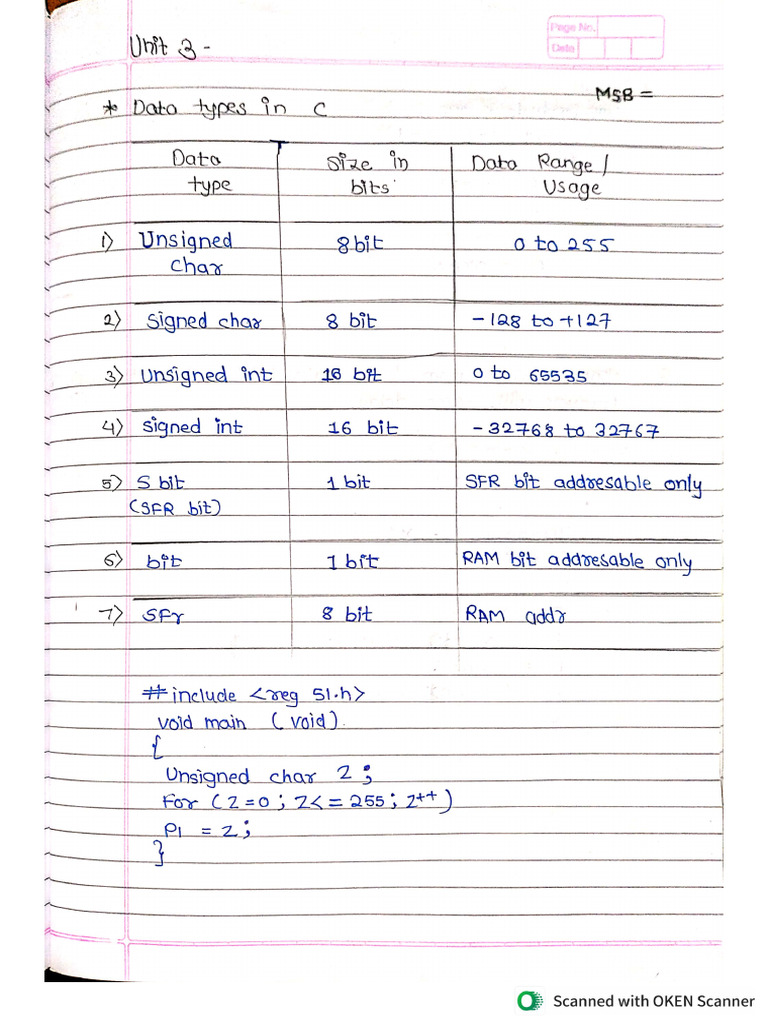 Page No.
Date
Unit 3 -
MSB =
* Data types in C
Data type | Size in bits | Data Range / Usage
1) Unsigned char | 8 bit | 0 to 255
2) Signed char | 8 bit | -128 to +127
3) Unsigned int | 16 bit | 0 to 65535
4) Signed int | 16 bit | -32768 to 32767
5) S bit (SFR bit) | 1 bit | SFR bit addresable only
6) bit | 1 bit | RAM bit addresable only
7) SFr | 8 bit | RAM addr
#include <reg 51.h>
void main (void)
{
Unsigned char Z;
For (Z=0; Z<=255; Z++)
P1 = Z;
}
Scanned with OKEN Scanner